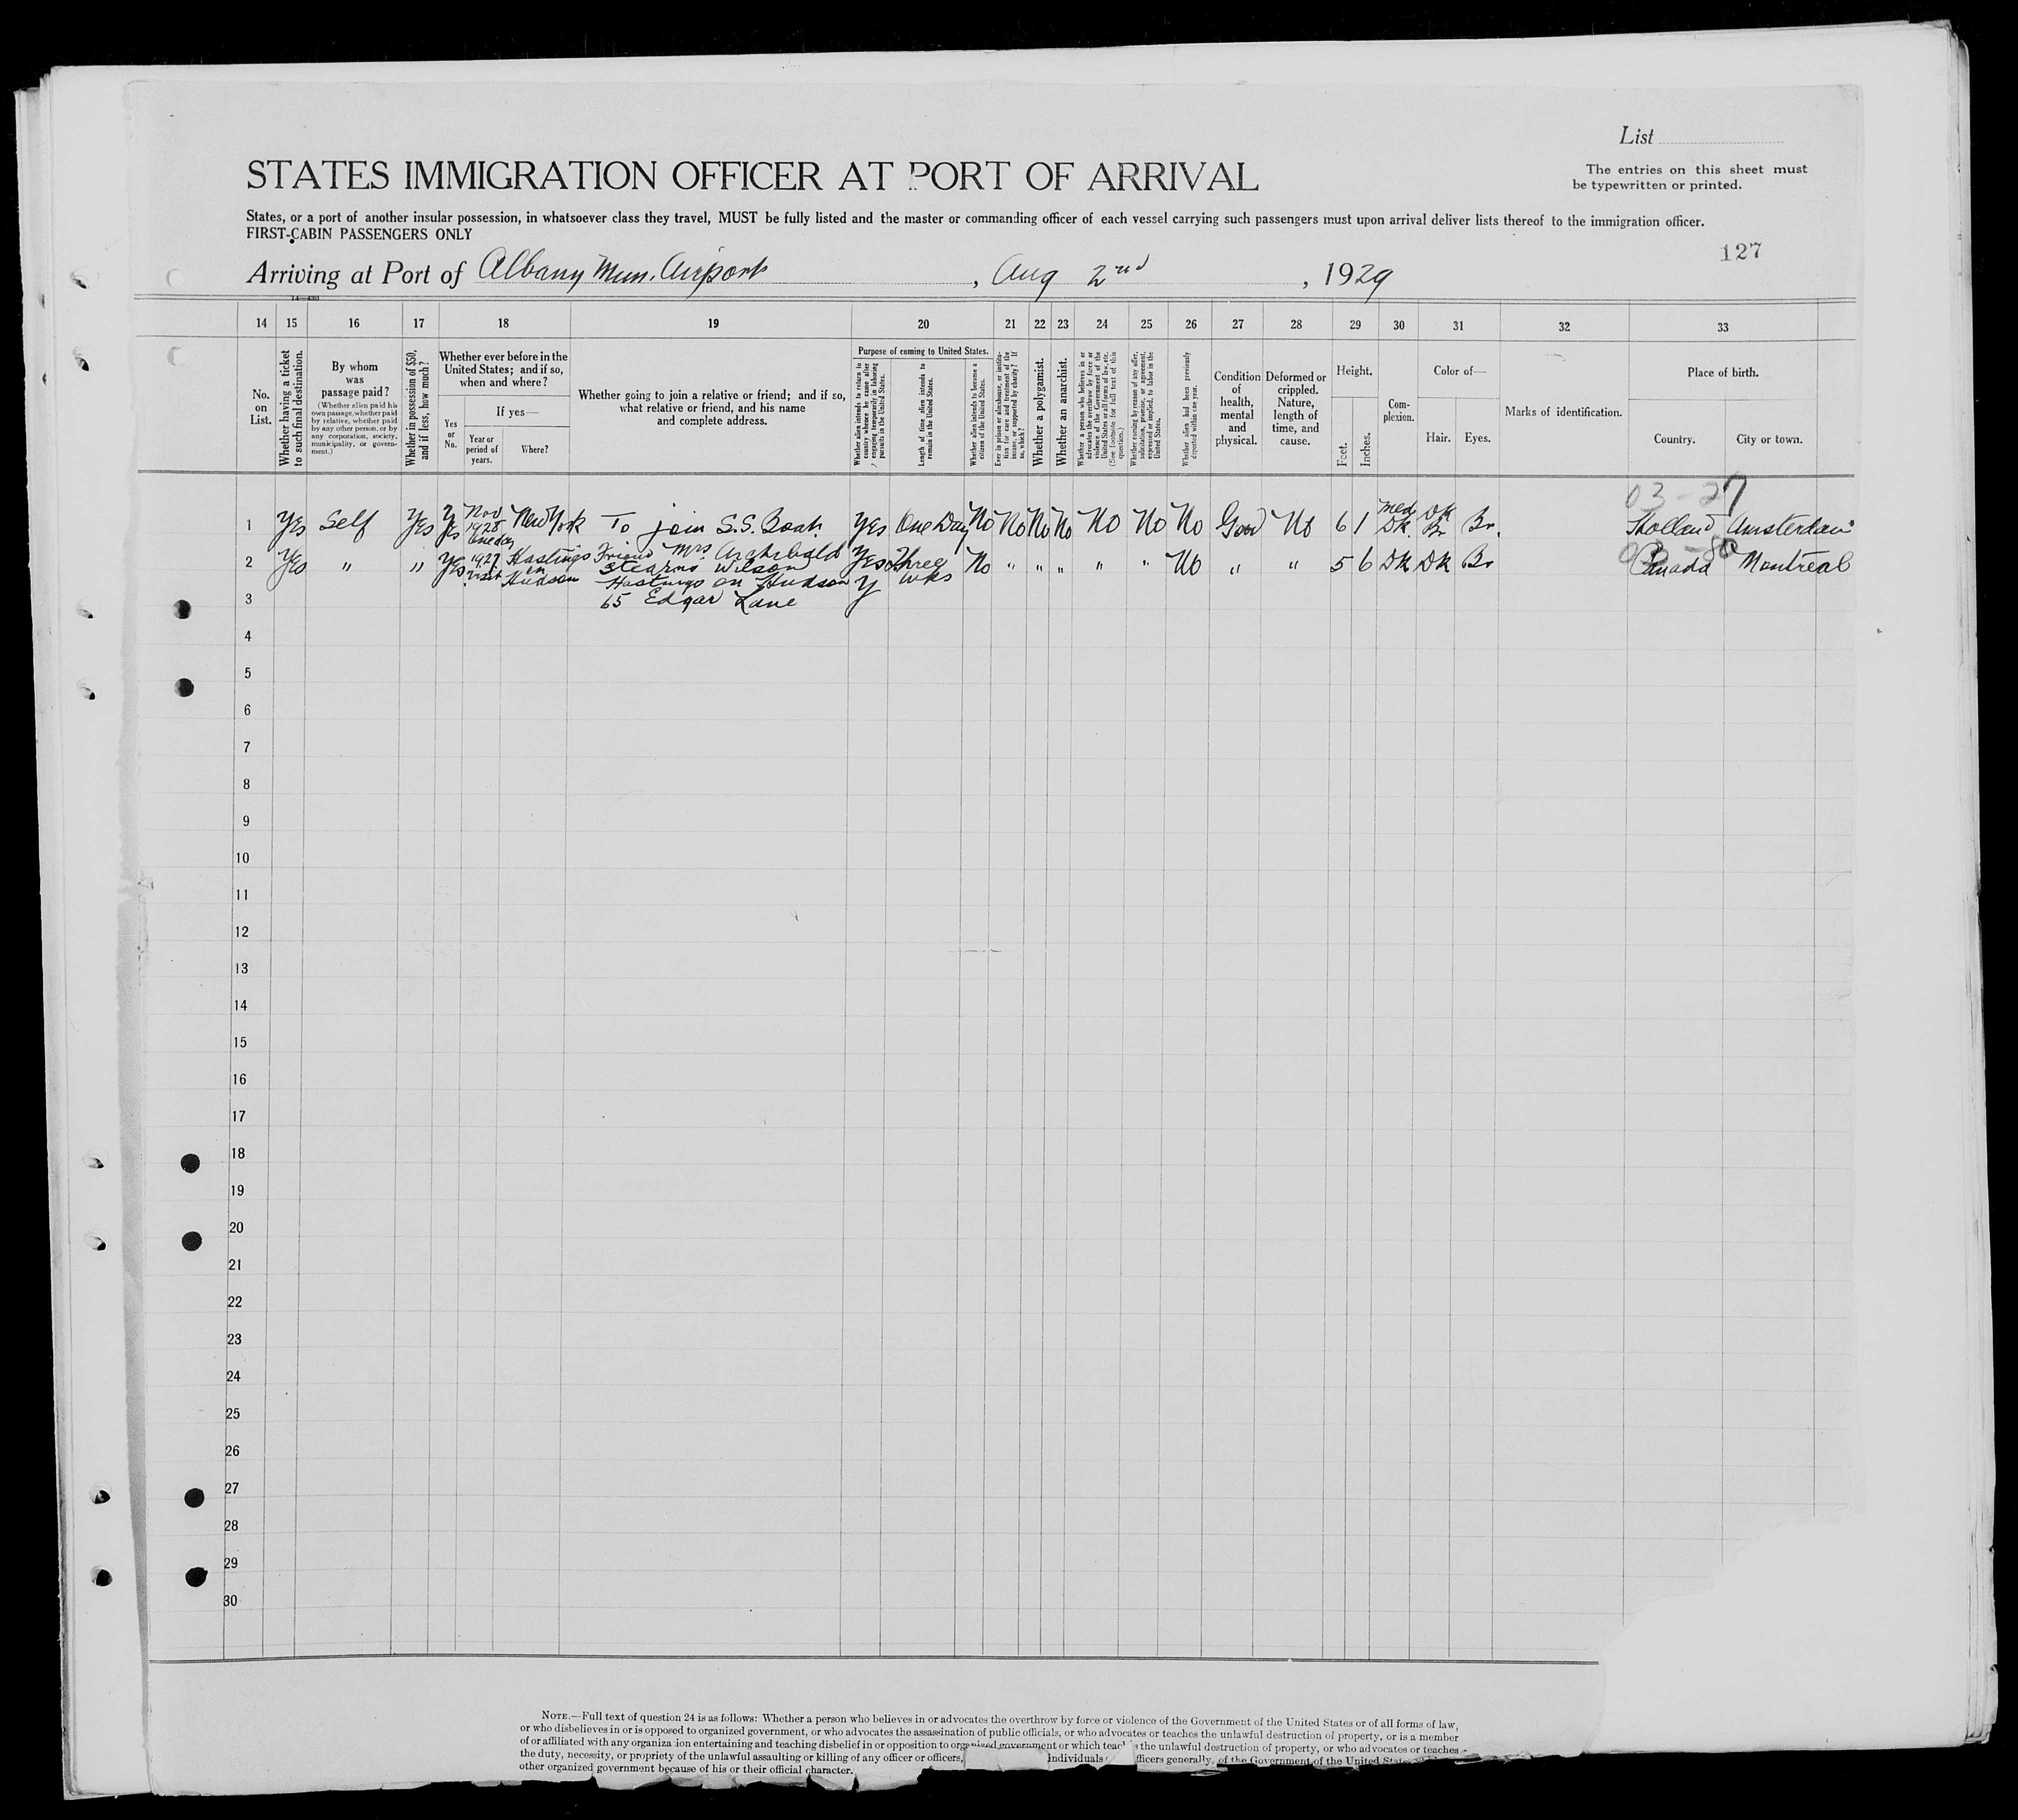 List
STATES IMMIGRATION OFFICER AT PORT OF ARRIVAL
The entries on this sheet must
be typewritten or printed.
States, or a port of another insular possession, in whatsoever class they travel, MUST be fully listed and the master or commanding officer of each vessel carrying such passengers must upon arrival deliver lists thereof to the immigration officer.
FIRST-CABIN PASSENGERS ONLY
127
Arriving at Port of Albany Mun. Airport, Aug 2nd, 1929
14 15 16 17 18 19 20 21 22 23 24 25 26 27 28 29 30 31 32 33
No. on List.
Whether having a ticket to such final destination.
By whom was passage paid?
(Whether alien paid his own passage, whether paid by relative, whether paid by any other person, or by any corporation, society, municipality, or government.)
Whether in possession of $50, and if less, how much?
Whether ever before in the United States; and if so, when and where?
Yes or No.
If yes—
Year or period of years.
Where?
Whether going to join a relative or friend; and if so, what relative or friend, and his name and complete address.
Purpose of coming to United States.
Whether alien intends to return to country whence he came after engaging temporarily in laboring pursuits in the United States.
Length of time alien intends to remain in the United States.
Whether alien intends to become a citizen of the United States.
Ever in prison or almshouse, or institution for care and treatment of the insane, or supported by charity? If so, which?
Whether a polygamist.
Whether an anarchist.
Whether a person who believes in or advocates the overthrow by force or violence of the Government of the United States or all forms of law, etc. (See footnote for full text of this question.)
Whether coming by reason of any offer, solicitation, promise, or agreement, expressed or implied, to labor in the United States.
Whether alien had been previously deported within one year.
Condition of health, mental and physical.
Deformed or crippled. Nature, length of time, and cause.
Height.
Feet.
Inches.
Complexion.
Color of—
Hair.
Eyes.
Marks of identification.
Place of birth.
Country.
City or town.
03-27
1 Yes Self Yes Yes Nov 1928 One day New York To join S.S. Boat. Yes One Day No No No No No No No Good No 6 1 Med Dk. Dk Br Br. Holland Amsterdam
2 Yes " " Yes 1927 Visit Hastings on Hudson Friend Mrs Archibald Yes Three wks No " " " " " No " " 5 6 Dk Dk Br Canada Montreal
Stearns Wilson
Hastings on Hudson
3 65 Edgar Lane
4
5
6
7
8
9
10
11
12
13
14
15
16
17
18
19
20
21
22
23
24
25
26
27
28
29
30
NOTE.—Full text of question 24 is as follows: Whether a person who believes in or advocates the overthrow by force or violence of the Government of the United States or of all forms of law,
or who disbelieves in or is opposed to organized government, or who advocates the assassination of public officials, or who advocates or teaches the unlawful destruction of property, or is a member
of or affiliated with any organization entertaining and teaching disbelief in or opposition to organized government or which teac s the unlawful destruction of property, or who advocates or teaches
the duty, necessity, or propriety of the unlawful assaulting or killing of any officer or officers, individuals fficers generally, of the Government of the United
other organized government because of his or their official character.